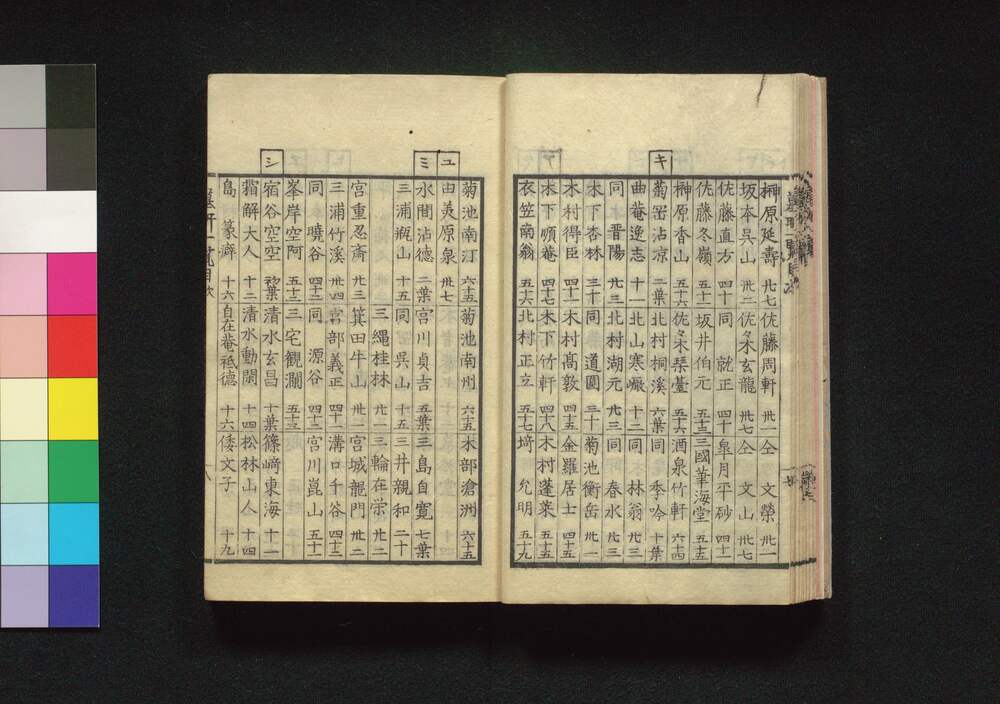 榊原延壽 丗七 佐藤周軒 丗一 仝 文榮 丗一
坂本呉山 丗二 佐々木玄龍 丗七 仝 文山 丗七
佐藤直方 四十 同 就正 四十 皐月平砂 四十一
佐藤冬嶺 五十二 坂井伯元 五十三 三國筆海堂 五十五
榊原香山 五十六 佐々木琴臺 五十六 酒泉竹軒 六十四
キ
菊岡沾凉 二葉 北村桐溪 六葉 同 季吟 十葉
曲菴逸志 十一 北山寒巖 十二 同 林翁 廿三
同 晋陽 廿三 北村湖元 廿三 同 春水 廿三
木下杏林 三十 同 道圓 三十 菊池衡岳 丗一
木村得臣 四十一 木村髙敦 四十五 金羅居士 四十五
木下順菴 四十七 木下竹軒 四十八 木村蓬莱 五十五
衣笠南翁 五十六 北村正立 五十七 﨑 允明 五十九
菊池南汀 六十五 菊池南州 六十五 木部滄洲 六十五
ユ
由美原泉 丗七
ミ
水間沾德 二葉 宮川貞吉 五葉 三島自寛 七葉
三浦瓶山 十五 同 呉山 十五 三井親和 二十
三繩桂林 廿一 三輪在栄 廿二
宮重忍齋 廿三 箕田牛山 丗一 宮城龍門 丗二
三浦竹溪 丗四 宮部義正 四十一 溝口千谷 四十三
同 曉谷 四十三 同 源谷 四十三 宮川崑山 五十二
峯岸空阿 五十三 三宅觀瀾 五十三
シ
宿谷空空 初葉 清水玄昌 十葉 篠﨑東海 十一
霜解大人 十二 清水動閑 十四 松林山人 十四
島 篆癖 十六 自在菴祇德 十六 倭文子 十九